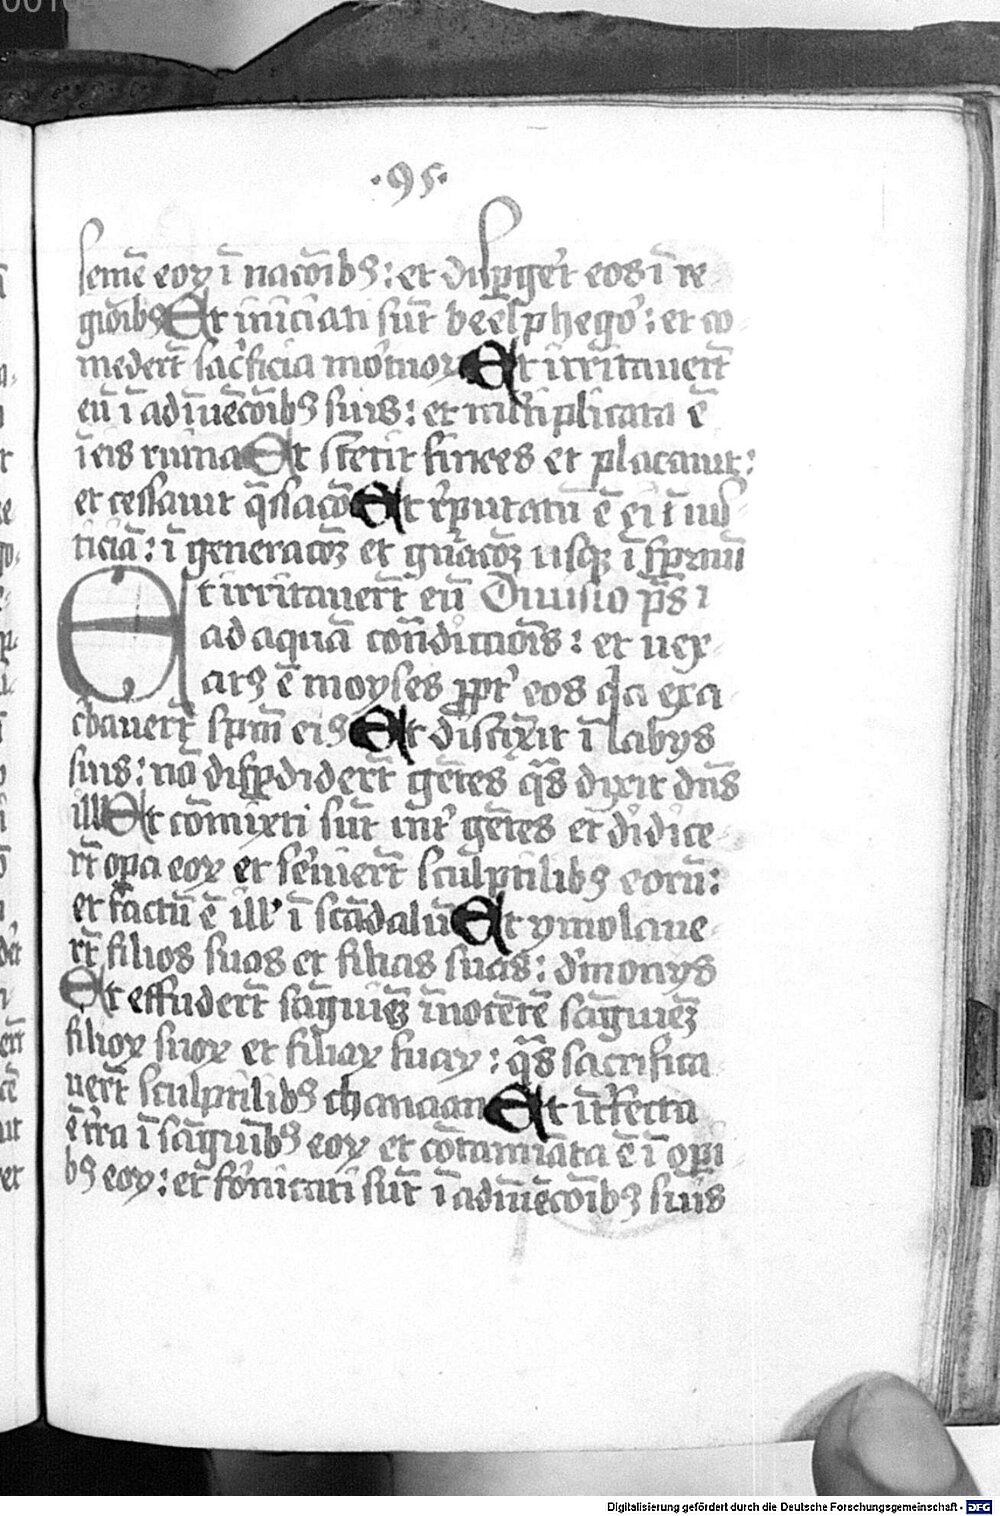 ·95·
semē eoꝝ ī nacōibꝫ : et dispger̄t eos ī re
gioībꝫ Et iniciati sūt beelphego2 : et co
medert̄ sac̓ficia mo2tuoꝝ Et irritauert̄
eū ī adīuēcōibꝫ suis : et multiplicata ē
ī eis ruina Et stetit finees et placauit :
et cessauit q̄ssacō Et reputatū ē ei ī ius
ticiā : ī generacōꝫ et gn̄acōꝫ usqꝫ ī sp̄rnū
Et irritauert̄ eū Diuisio ps̄ ī
ad aquā cont̄dictiōis : et uex
atꝰ ē moyses ꝓpt̓ eos qia exa
cb̄auert̄ spm̄ eiꝰ Et distīxit ī labijs
suis : nō disꝑdidert̄ gētes q̄s dixit dn̄s
ill̓ Et cōmixti sūt int̓ gētes et didice
rt̄ oꝑa eoꝝ et seruiert̄ sculptilibꝫ eorū :
et factū ē ill̓ ī scādalū Et ymolaue
rt̄ filios suos et filias suas : d̓monijs
Et effudert̄ sāguīeꝫ īnocētē sāguīeꝫ
filioꝝ suoꝝ et filiaꝝ suaꝝ : q̄s sacrifica
uert̄ sculptilibꝫ chanaan Et īt̓fecta
ē t̓ra ī sāguīibꝫ eoꝝ et cōtamīata ē ī oꝑi
bꝫ eoꝝ : et fornicati sūt ī adīuēcōibꝫ suis
Digitalisierung gefördert durch die Deutsche Forschungsgemeinschaft - DFG